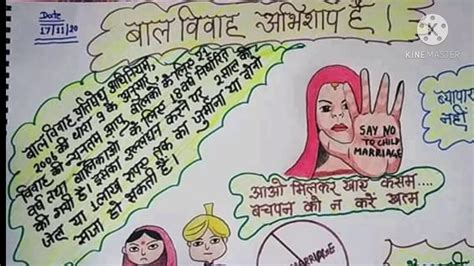 Date
17/11/20
बाल विवाह अभिशाप है।
KINEMASTER
बाल विवाह प्रतिषेध अधिनियम,
2006 की धारा 3 के अनुसार,
विवाह की न्यूनतम आयु बालकों के लिए 21
वर्ष तथा बालिकाओं के लिए 18 वर्ष निर्धारित
की गयी है। इसका उल्लंघन करने पर 2 साल की
जेल या 1 लाख रुपए तक का जुर्माना या दोनों
सजा हो सकती है।
SAY NO
TO CHILD
MARRIAGE
व्यापार
नहीं
आओ मिलकर खाये कसम....
बचपन को न करें खत्म
MARRIAGE